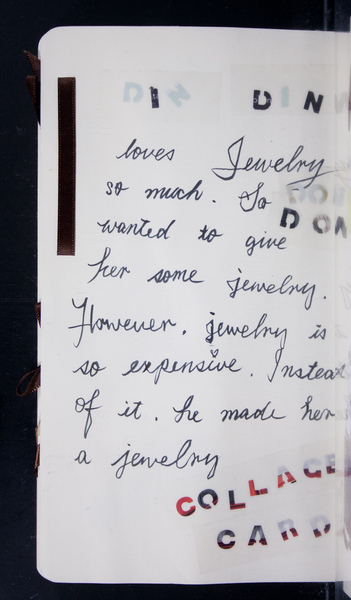 DI DIN
loves Jewelry
so much. So
DON
wanted to give
her some jewelry.
However, jewelry is
so expensive. Instead
of it, he made her
a jewelry
COLLAGE
CARD